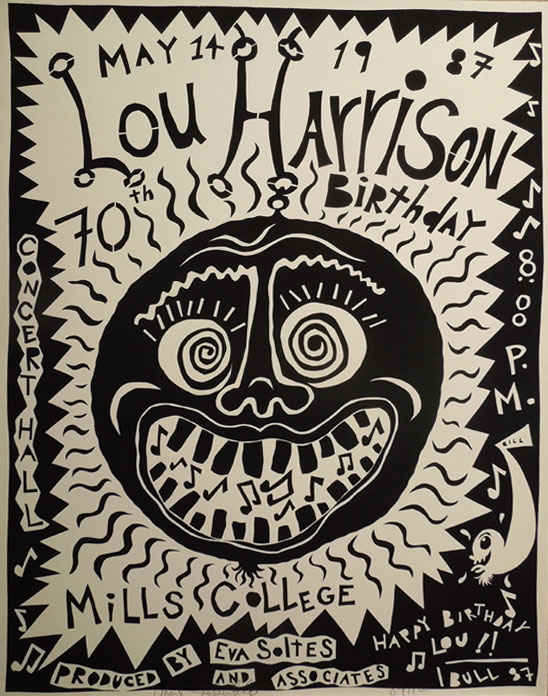 MAY 14 1987
Lou Harrison
70th Birthday
CONCERT HALL
8:00 P.M.
BILL
MILLS COLLEGE
HAPPY BIRTHDAY
LOU!!
PRODUCED BY EVA SOLTES
AND ASSOCIATES
1 BULL 87